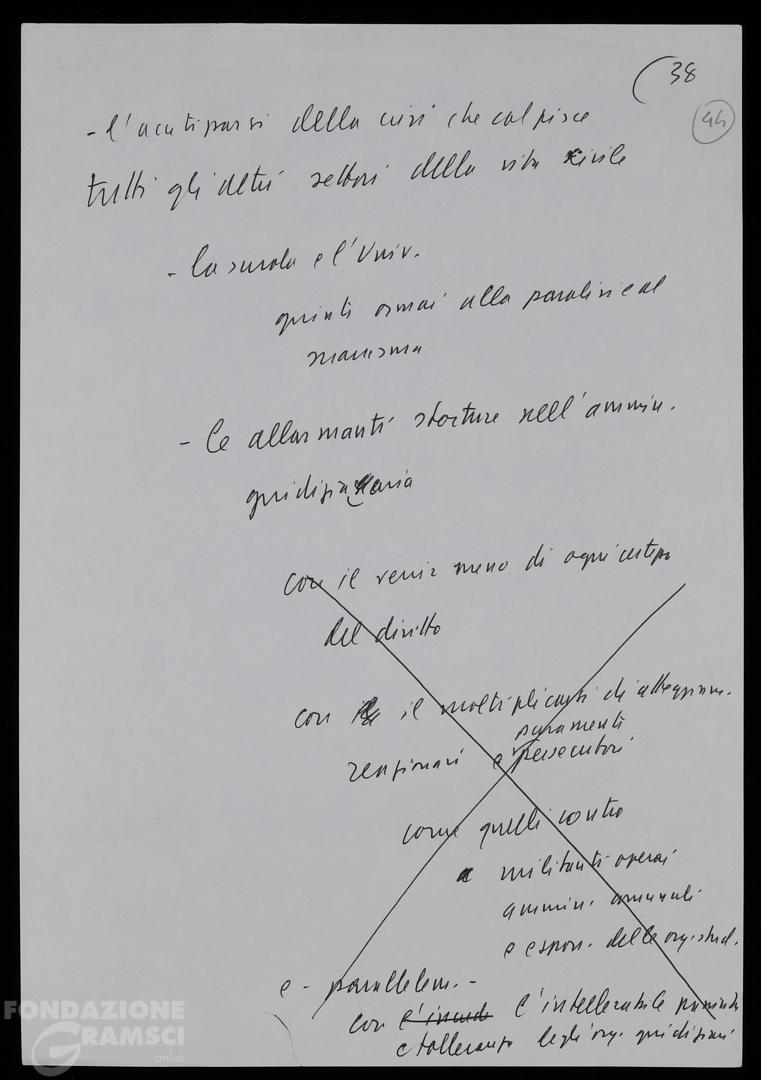 38
44
- l'acutizzarsi della crisi che colpisce
tutti gli altri settori della vita civile
- la scuola e l'Univ.
giunti ormai alla paralisi e al
marasma
- le allarmanti storture nell'ammin.
giudiziaria
con il venir meno di ogni certezza
del diritto
con il moltiplicarsi di atteggiam.
reazionari e
puramenti
persecutori
come quelli contro
militanti operai
ammin. comunali
e espon. delle org. stud.
e - parallelam. -
con l'intollerabile
e tolleranza degli org. giudiziari
FONDAZIONE
GRAMSCI
onlus